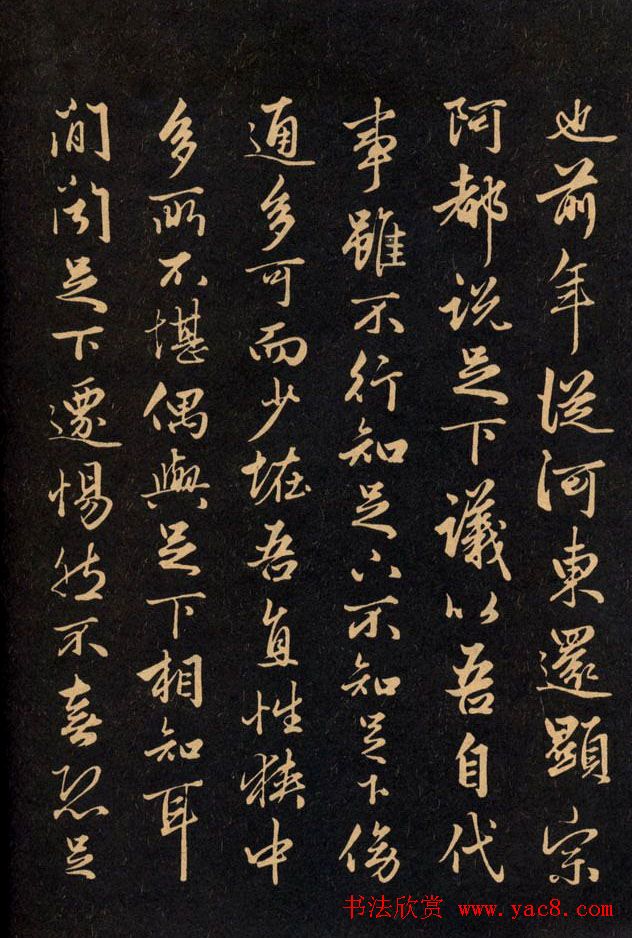 也前年從河東還顯宗
阿都說足下議以吾自代
事雖不行知足下不知足下傍
通多可而少恠吾直性狹中
多所不堪偶與足下相知耳
間聞足下遷惕然不喜恐足
书法欣赏 www.yac8.com